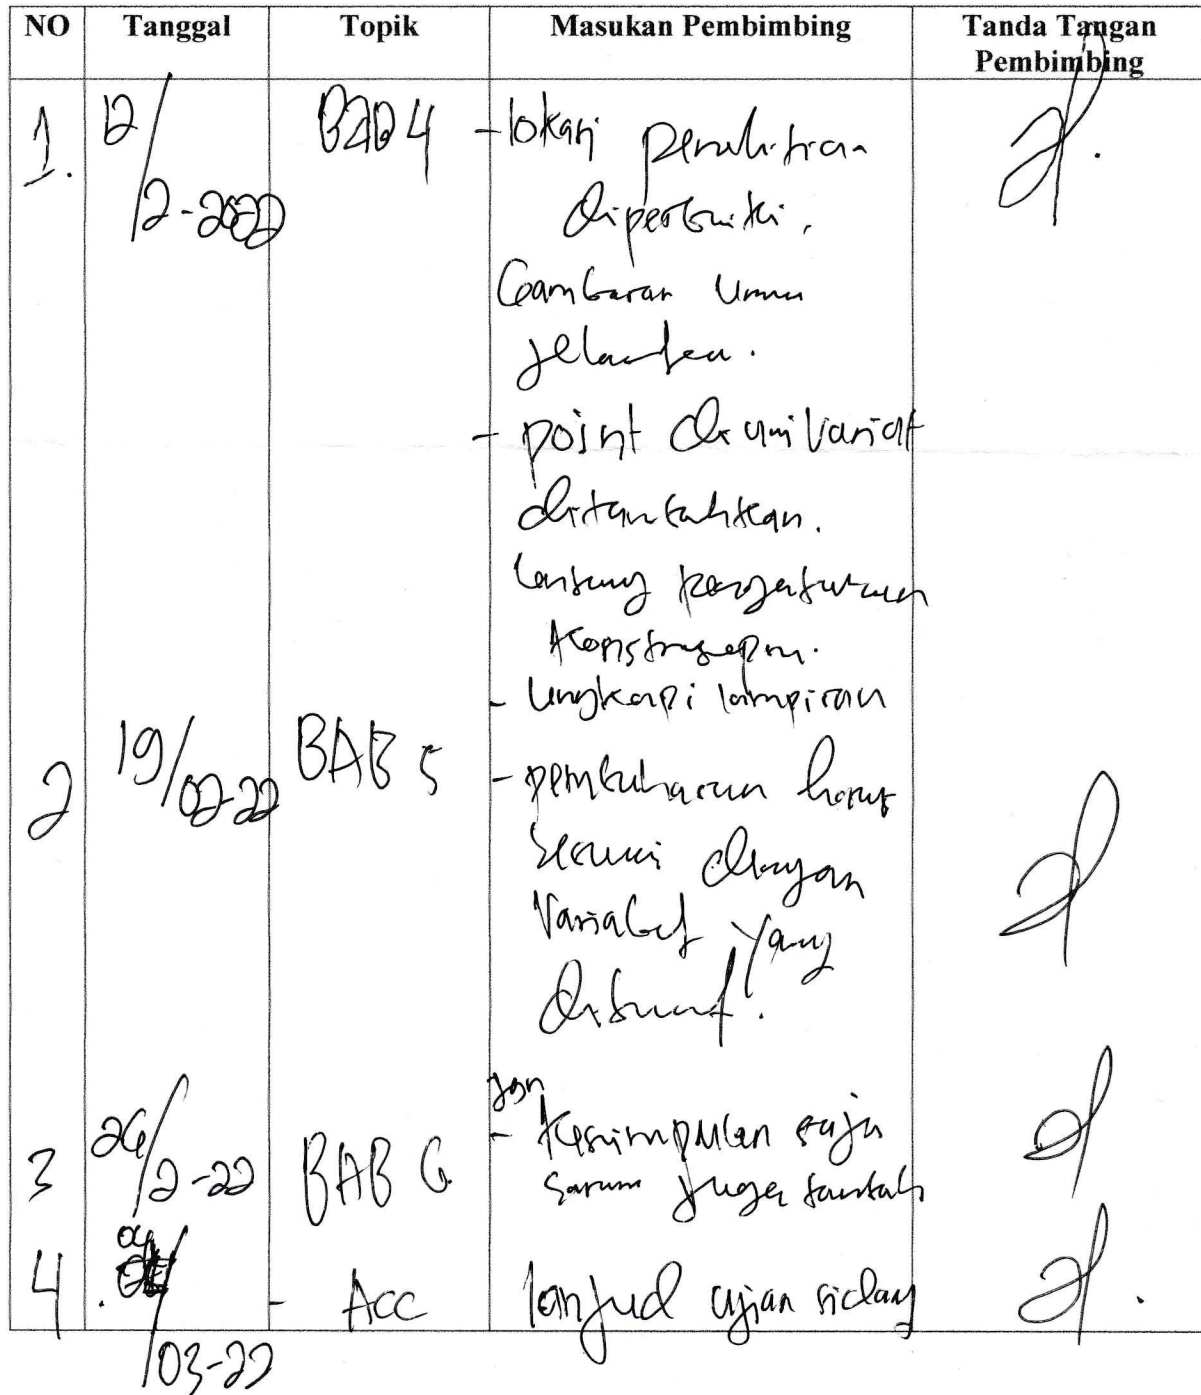 NO Tanggal Topik Masukan Pembimbing Tanda Tangan Pembimbing
1. 12/2-2022 BAB 4 - lokasi penelitian
diperbaiki.
Gambaran Umum
jelaskan.
- point di univariat
ditambahkan.
- lengkapi lampiran
2 19/02-22 BAB 5 - pembahasan harus
sesuai dengan
Variabel yang
dibuat.
3 26/2-22 BAB 6 jgn
- kesimpulan saja
saran juga tambah
4 /03-22 - Acc lanjud ujian sidang